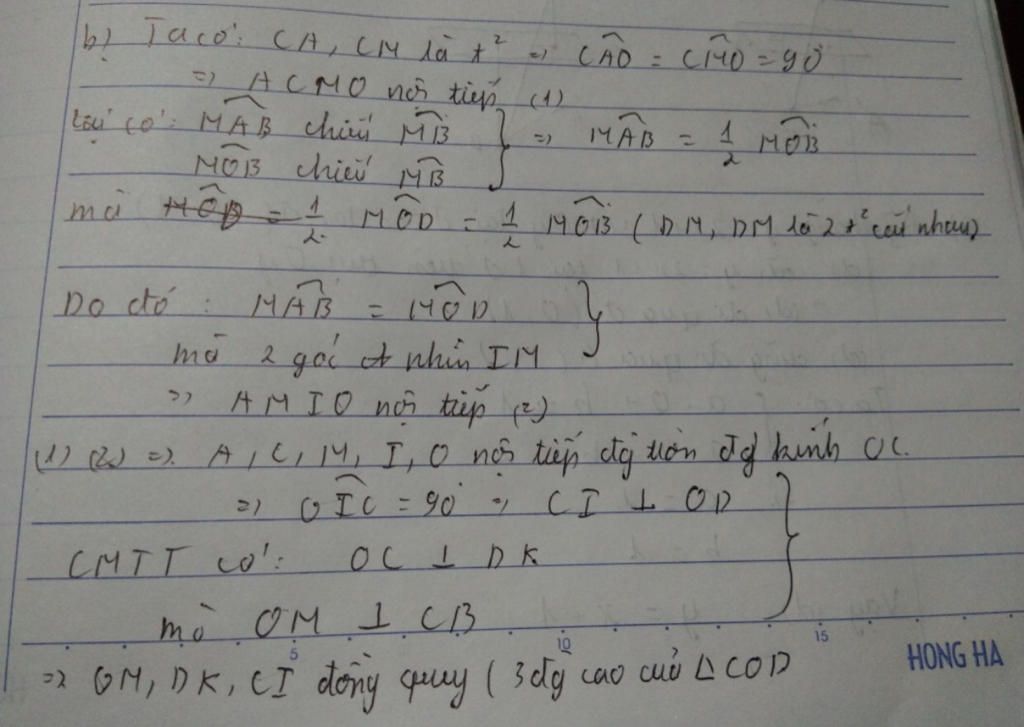 b) Ta có: CA, CM là t² => CÂO = CM̂O = 90°
=> ACMO nội tiếp (1)
lại có: MÂB chiếu MB
MÔB chiếu MB
=> MÂB = 1/2 MÔB
mà MÔD = 1/2 MÔB (DM, DM là 2 t² cắt nhau)
Do đó: MÂB = MÔD
mà 2 góc nhìn IM
=> AMIO nội tiếp (2)
(1) (2) => A, C, M, I, O nội tiếp đg tròn đg kính OC.
=> OÎC = 90° => CI ⊥ OD
CMTT có: OC ⊥ DK
mà OM ⊥ CB
=> OM, DK, CI đồng quy (3 đg cao của △COD
5 10 15
HONG HA